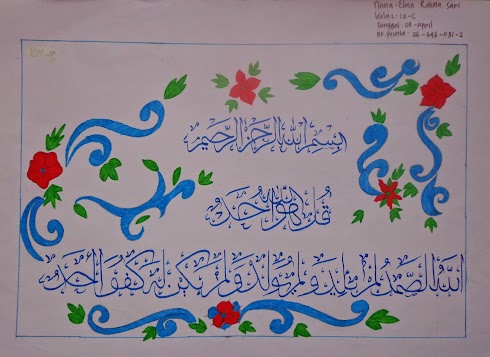 Nama : Rahma Sari
Kelas : IX-C
Tanggal : 08-april
no. peserta : 26-646-031-2
بسم الله الرحمن الرحيم
قل هو الله احد
الله الصمد لم يلد ولم يولد ولم يكن له كفوا احد